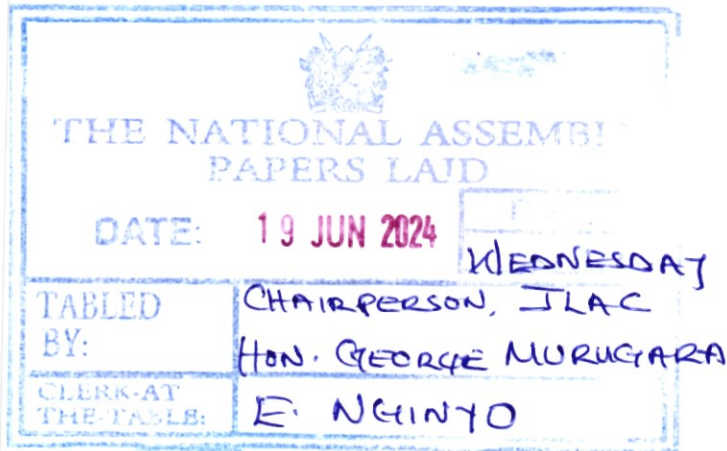 THE NATIONAL ASSEMBL
PAPERS LAID
DATE: 19 JUN 2024
WEDNESDAY
TABLED BY: CHAIRPERSON, JLAC
HON. GEORGE MURUGARA
CLERK-AT THE-TABLE: E. NGINYO